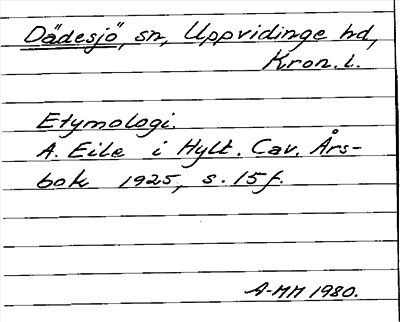 Dädesjö, sn, Uppvidinge hd,
Kron. l.
Etymologi.
A. Eile i Hylt. Cav. Års-
bok 1925, s. 15f.
A-MM 1980.